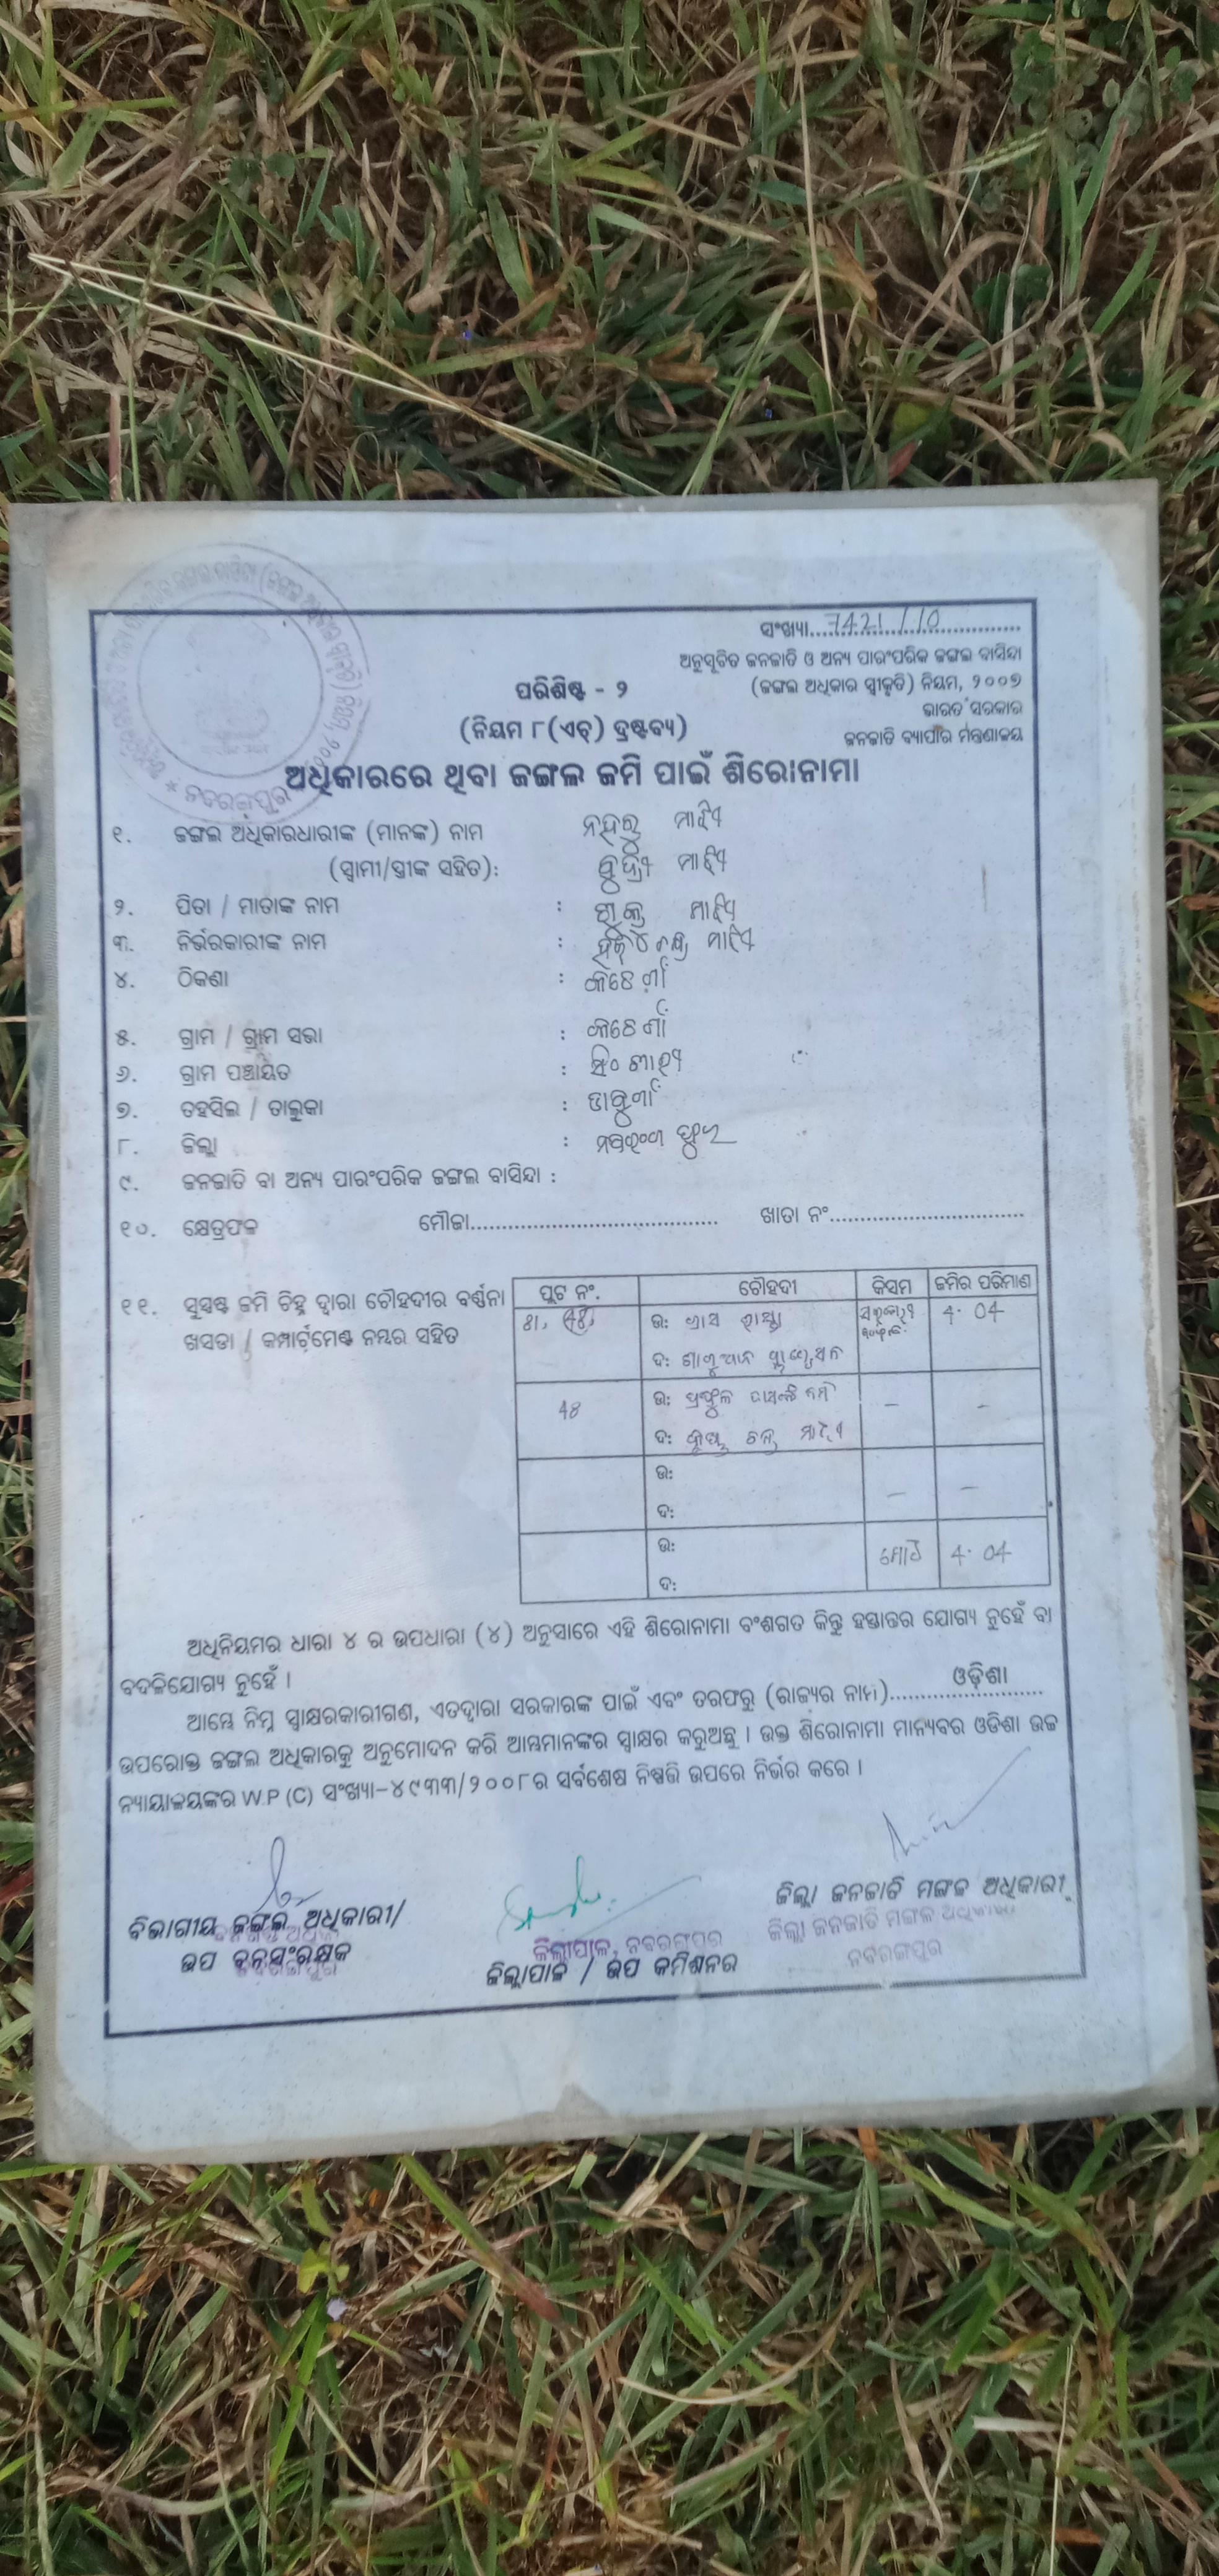 ସଂଖ୍ୟା....7421/10....
ଅନୁସୂଚିତ ଜନଜାତି ଓ ଅନ୍ୟ ପାରଂପରିକ ଜଙ୍ଗଲ ବାସିନ୍ଦା
(ଜଙ୍ଗଲ ଅଧିକାର ସ୍ୱୀକୃତି) ନିୟମ, ୨୦୦୭
ଭାରତ ସରକାର
ଜନଜାତି ବ୍ୟାପାର ମନ୍ତ୍ରଣାଳୟ
ପରିଶିଷ୍ଟ - ୨
(ନିୟମ ୮(ଏଚ୍) ଦ୍ରଷ୍ଟବ୍ୟ)
ଅଧିକାରରେ ଥିବା ଜଙ୍ଗଲ ଜମି ପାଇଁ ଶିରୋନାମା
ନବରଙ୍ଗପୁର
୧. ଜଙ୍ଗଲ ଅଧିକାରଧାରୀଙ୍କ (ମାନଙ୍କ) ନାମ ନହରୁ ମାଝି
(ସ୍ୱାମୀ/ସ୍ତ୍ରୀଙ୍କ ସହିତ): ମାଝି
୨. ପିତା / ମାତାଙ୍କ ନାମ : ମାଝି
୩. ନିର୍ଭରକାରୀଙ୍କ ନାମ : ମାଝି
୪. ଠିକଣା :
୫. ଗ୍ରାମ / ଗ୍ରାମ ସଭା :
୬. ଗ୍ରାମ ପଞ୍ଚାୟତ :
୭. ତହସିଲ / ତାଲୁକା : ଡାବୁଗାଁ
୮. ଜିଲ୍ଲା : ନବରଂଗପୁର
୯. ଜନଜାତି ବା ଅନ୍ୟ ପାରଂପରିକ ଜଙ୍ଗଲ ବାସିନ୍ଦା :
୧୦. କ୍ଷେତ୍ରଫଳ ମୌଜା.................... ଖାତା ନଂ....................
୧୧. ସୁସ୍ପଷ୍ଟ ଜମି ଚିହ୍ନ ଦ୍ୱାରା ଚୌହଦୀର ବର୍ଣ୍ଣନା
ଖସଡା / କମ୍ପାର୍ଟମେଣ୍ଟ ନମ୍ବର ସହିତ
ପ୍ଲଟ ନଂ. ଚୌହଦୀ କିସମ ଜମିର ପରିମାଣ
ଉ: 4.04
ଦ:
48 ଉ: ପ୍ରଫୁଲ — —
ଦ: ମାଝି
ଉ: — —
ଦ:
ଉ: ମୋଟ 4.04
ଦ:
ଅଧିନିୟମର ଧାରା ୪ ର ଉପଧାରା (୪) ଅନୁସାରେ ଏହି ଶିରୋନାମା ବଂଶଗତ କିନ୍ତୁ ହସ୍ତାନ୍ତର ଯୋଗ୍ୟ ନୁହେଁ ବା
ବଦଳିଯୋଗ୍ୟ ନୁହେଁ ।
ଆମ୍ଭେ ନିମ୍ନ ସ୍ୱାକ୍ଷରକାରୀଗଣ, ଏତଦ୍ୱାରା ସରକାରଙ୍କ ପାଇଁ ଏବଂ ତରଫରୁ (ରାଜ୍ୟର ନାମ)....ଓଡ଼ିଶା....
ଉପରୋକ୍ତ ଜଙ୍ଗଲ ଅଧିକାରକୁ ଅନୁମୋଦନ କରି ଆମ୍ଭମାନଙ୍କର ସ୍ୱାକ୍ଷର କରୁଅଛୁ । ଉକ୍ତ ଶିରୋନାମା ମାନ୍ୟବର ଓଡିଶା ଉଚ୍ଚ
ନ୍ୟାୟାଳୟଙ୍କର W.P (C) ସଂଖ୍ୟା-୪୯୩୩/୨୦୦୮ର ସର୍ବଶେଷ ନିଷ୍ପତ୍ତି ଉପରେ ନିର୍ଭର କରେ ।
ବିଭାଗୀୟ ଜଙ୍ଗଲ ଅଧିକାରୀ/
ଉପ ବନସଂରକ୍ଷକ
ଜିଲ୍ଲାପାଳ, ନବରଙ୍ଗପୁର
ଜିଲ୍ଲାପାଳ / ଉପ କମିଶନର
ଜିଲ୍ଲା ଜନଜାତି ମଙ୍ଗଳ ଅଧିକାରୀ
ଜିଲ୍ଲା ଜନଜାତି ମଙ୍ଗଳ ଅଧିକାରୀ
ନବରଙ୍ଗପୁର